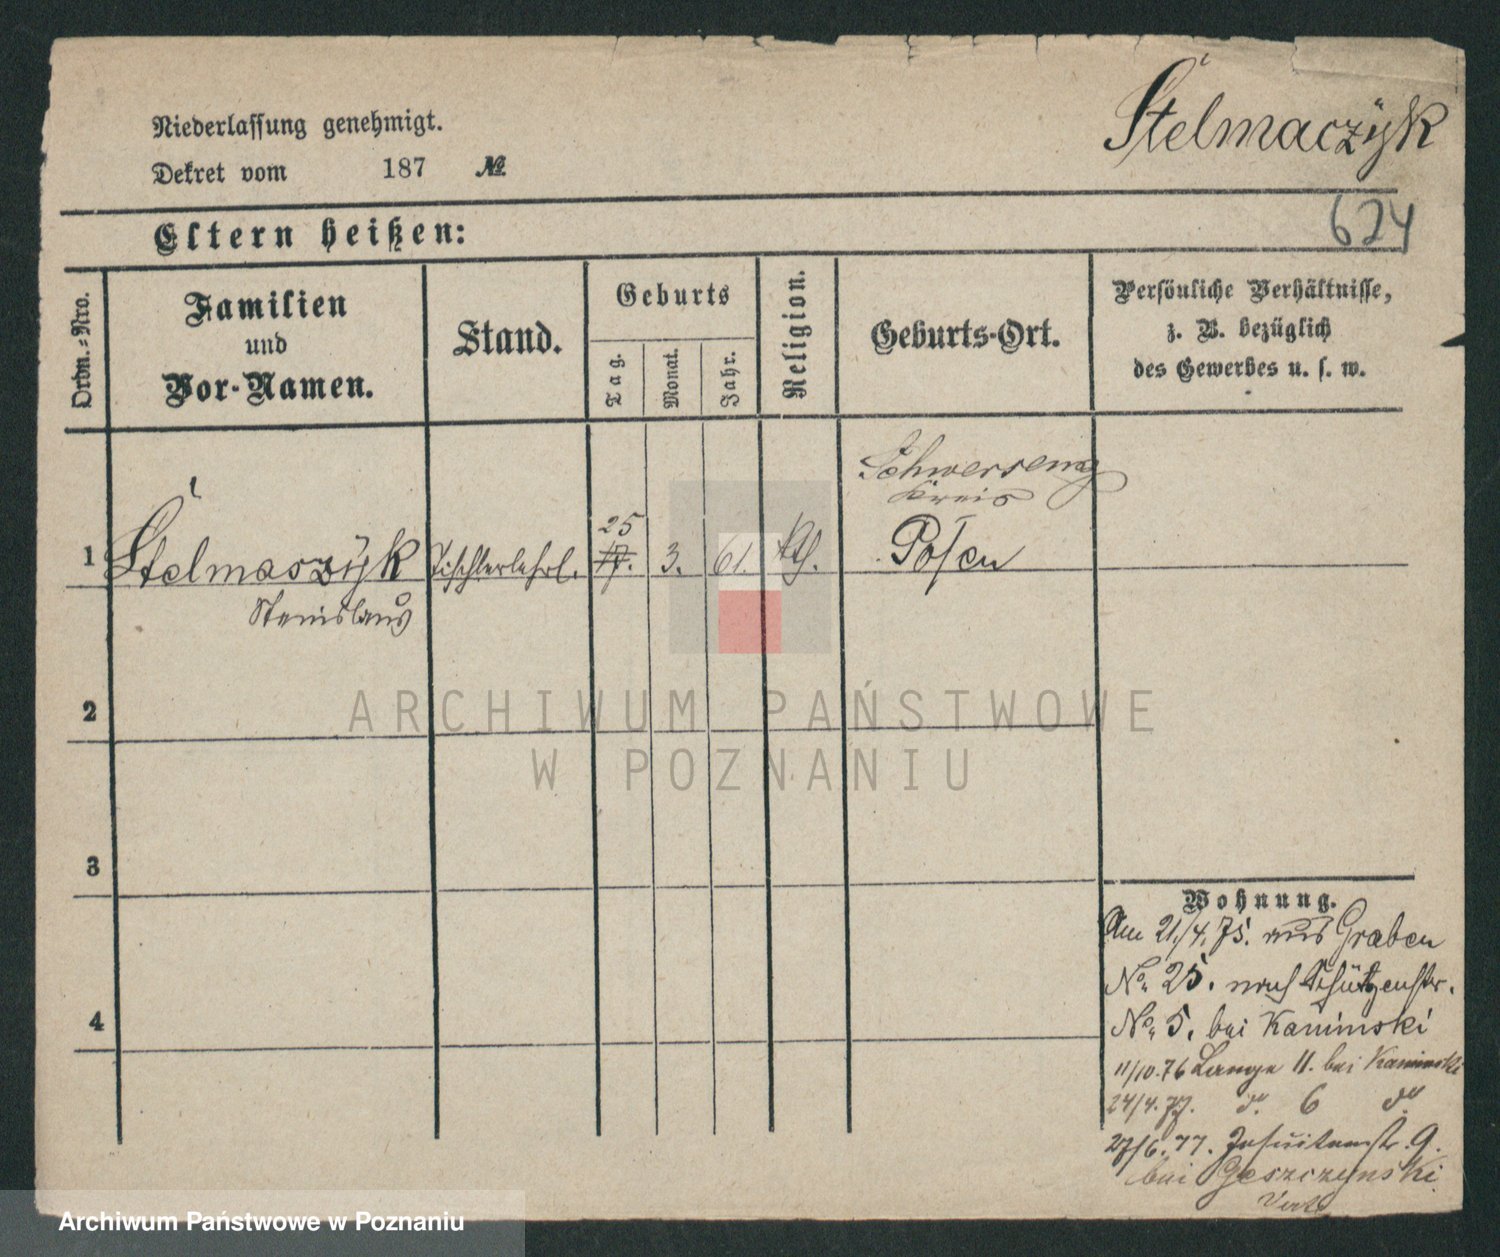 Niederlassung genehmigt.
Dekret vom 187 №
Stelmaczÿk
624
Eltern heißen:
Ordn.=Nro.
Familien
und
Vor-Namen.
Stand.
Geburts
Tag.
Monat.
Jahr.
Religion.
Geburts-Ort.
Persönliche Verhältnisse,
z. B. bezüglich
des Gewerbes u. s. w.
Schwersenz
Kreis
25
1 Stelmaszÿk Tischlerlehrl. 17. 3. 61. kth. Posen
Stanislaus
2
3
4
Wohnung.
Am 21./4. 75. aus Graben
No. 25. nach Schützenstr.
No. 5. bei Kaminski
11/10.76 Lange 11. bei Kaminski
24/4.77. do. 6 do.
27/6.77. Jesuitenstr. 9.
bei
ARCHIWUM PAŃSTWOWE
W POZNANIU
Archiwum Państwowe w Poznaniu